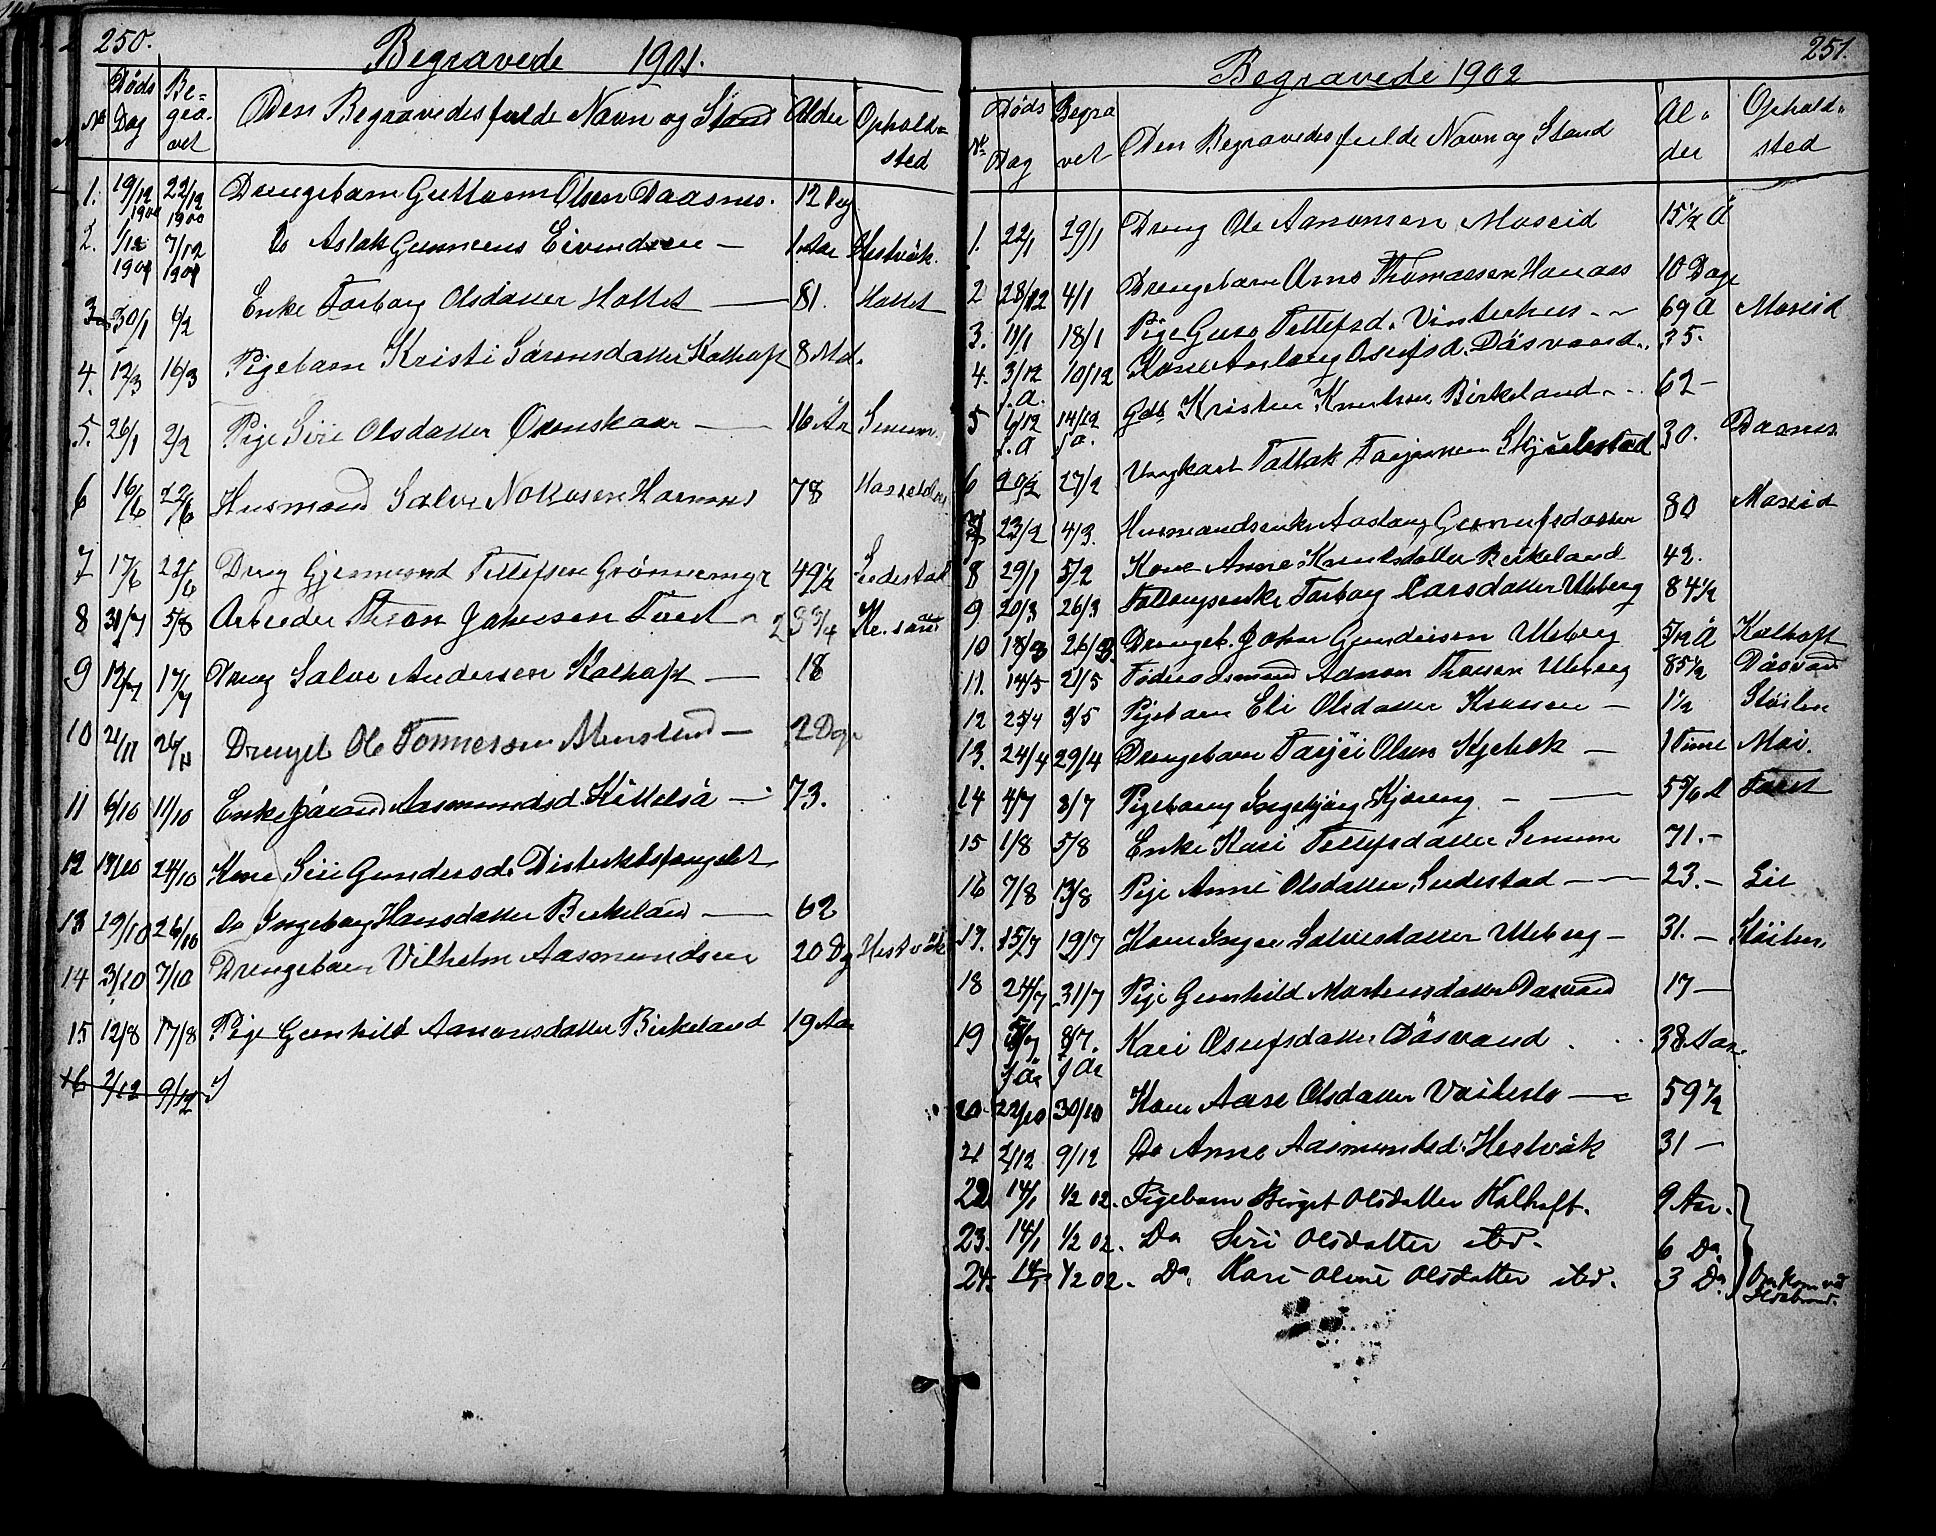 250.
Begravede 1901.
No Døds Dag Be= gra. vet Den Begravedes fulde Navn og Stand Alder Ophold= sted
1. 19/12 1900 22/12 1900 Drengebarn Guttorm Olsen Daasnes. 12 Dg
2. 1/12 1901 7/12 1901 Do Aslak Gunneius Eivindsen — 1 Aar Hestvåk.
3 30/1 6/2 Enke Torborg Olsdatter Holtet — 81. Holtet
4. 12/3 16/3 Pigebarn Kristi Sørensdatter Kalhoft 8 Md.
5. 26/1 2/2 Pige Siri Olsdatter Øvenskaar — 16 År
6 16/6 22/6 Husmand Salve 78
7 17/6 22/6 Dreng Gjermund Tellefsen Grønnemyr 49½
8 31/7 5/8 Arbeider Johnsen Tveit Kr.sand
9 12/7 17/7 Dreng Salve Andersen Kalhoft — 18
10 21/11 26/11 Drengeb. Ole Tønnesen — 2 Dg.
11 6/10 11/10 Enke Jørand Aasmundsd. Kittelså — 73.
12 19/10 24/10 Kone Siri Gundersd. Distriktsfængslet
13 19/10 26/10 Do Ingeborg Hansdatter Birkeland — 62
14 3/10 7/10 Drengebarn Vilhelm Aasmundsen 20 Dg Hestvåk
15 12/8 17/8 Pige Gunhild Aanonsdatter Birkeland 19 Aar
16 2/12 9/12 S
251.
Begravede 1902
No Døds Dag Begra vet Den Begravedes fulde Navn og Stand Al= der Ophold= sted
1. 22/1 29/1 Dreng Ole Aanonsen Moseid 15½ Å
2 28/12 4/1 Drengebarn Arne Thomassen Honaas 10 Dage
3. 11/1 18/1 Pige Guro Tellefsd. Vinterhus 69 Å Moseid
4. 3/12 f.a. 10/12 Kone Anlaug Osufsd. Dåsvand 35.
5 6/12 f.a 14/12 f.a. Gdb Kristen Knutsen Birkeland 62 —
6 20/2 27/2 Ungkarl Tallak Torjussen Skjeibstad 30. Daasnes
7 23/2 4/3. Husmandsenke Aaslaug Gunufsdatter 80 Moseid
8 29/1 5/2 Kone Anne Knutsdatter Birkeland 42.
9 20/3 26/3 Torborg Larsdatter Uleberg 84½
10 18/3 26/3. Drengeb. Johan Gundersen Uleberg 5/12 Å Kalhoft
11. 14/5 21/5 Føderaadsmand Uleberg 85½ Dåsvand
12 25/4 3/5 Pigebarn Eli Olsdatter — 1½ Støilen
13. 24/4 29/4 Drengebarn Tarjei Olsen — 1 Time Moi.
14 4/7 8/7 Pigebarn Ingebjørg Kjøreng — 5 5/6 Å Tveit
15 1/8 5/8 Enke Kari Tellefsdatter Senum 71. —
16 7/8 13/8 Pige Anne Olsdatter — 23. — Lie
17. 15/7 19/7 Kone Inger Salvesdatter Uleberg — 31. — Støilen
18 24/7 31/7 Pige Gunhild Mortensdatter Dåsvand 17 —
19 5/7 f år 8/7. f år Kari Osufsdatter Dåsvand 38 Aar.
20 22/10 30/10 Kone Aase Olsdatter — 59½
21 2/12 9/12 Do Anne Aasmundsd. Hestvåk 31 —
22 14/1 1/2 02. Pigebarn Birget Olsdatter Kalhoft. 9 Aar.
23. 14/1 1/2 02. Do Siri Olsdatter ibd. 6 Do
24. 14/1 1/2 02. Do Kari Oline Olsdatter ibd. 3 Do Omkom ved Ildebrand.